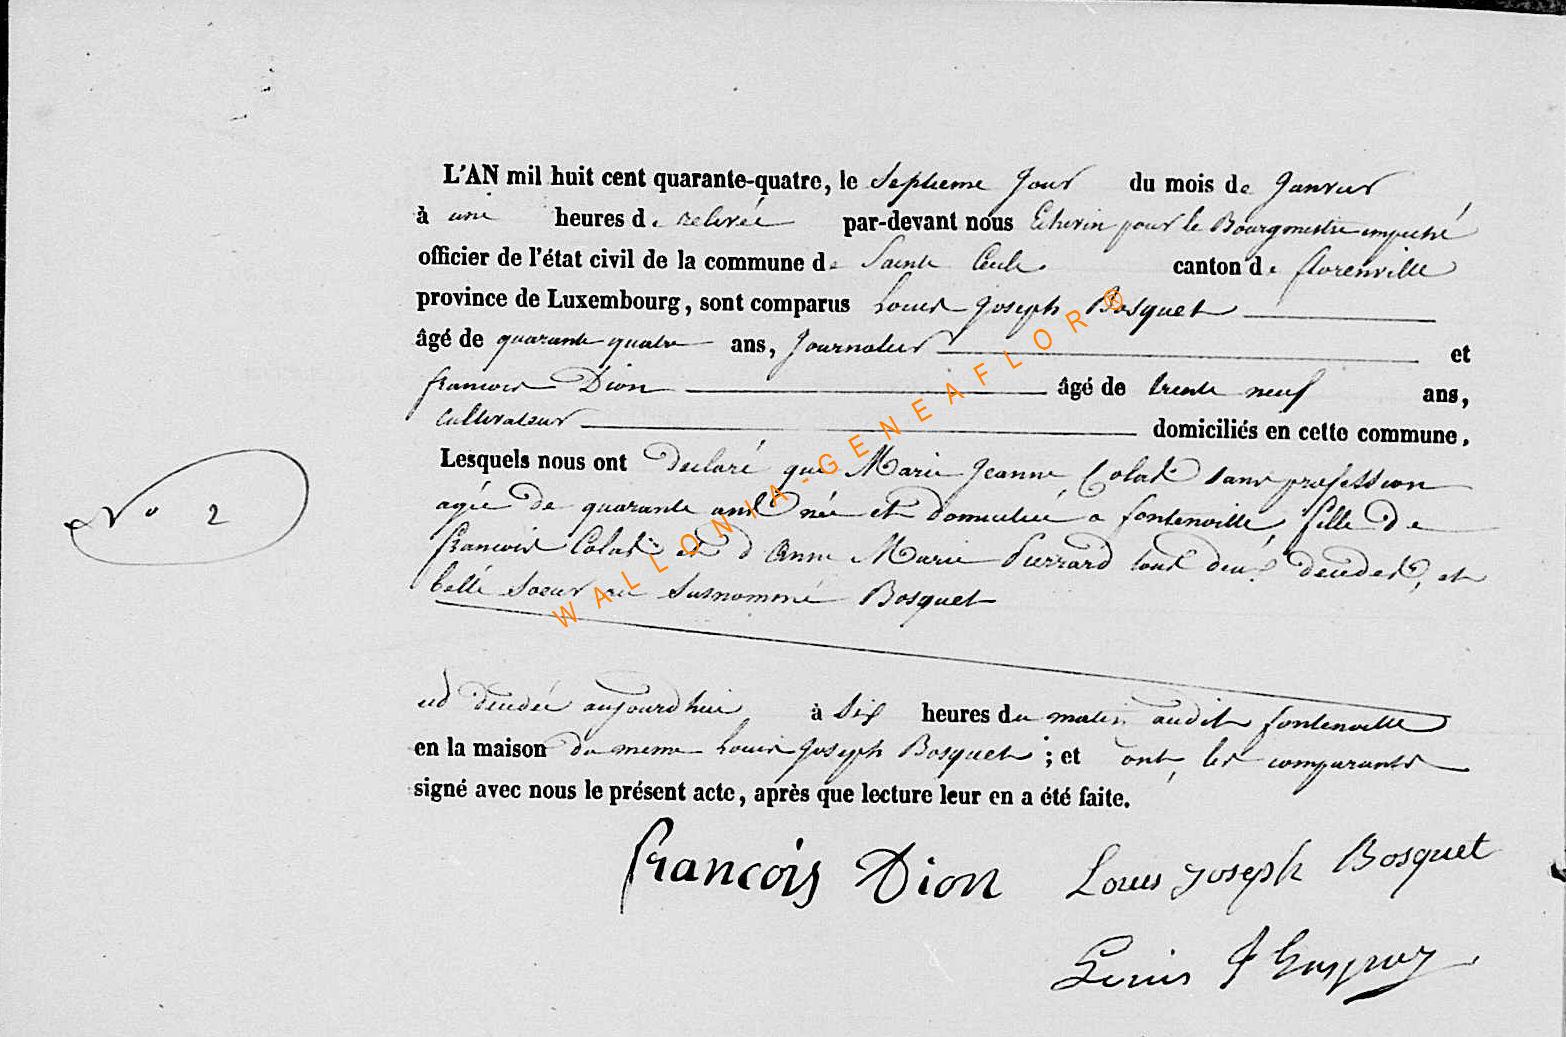 L'AN mil huit cent quarante-quatre, le Septieme Jour du mois de Janvier
à une heures de relevée par-devant nous Echevin pour le Bourgmestre empeché
officier de l'état civil de la commune de Sainte Cecile canton de florenville
province de Luxembourg, sont comparus Louis Joseph Bosquet
âgé de quarante quatre ans, Journalier et
francois Dion âgé de trente neuf ans,
Cultivateur domiciliés en cette commune.
Lesquels nous ont declaré que Marie Jeanne Colas sans profession
agée de quarante ans née et domiciliée a fontenoille, fille de
francois Colas et d'Anne Marie Pierrard tous deux decedes, et
belle soeur au susnommé Bosquet
N° 2
est decedée aujourdhui à six heures du matin audit fontenoille
en la maison du meme Louis Joseph Bosquet ; et ont, les comparants
signé avec nous le présent acte, après que lecture leur en a été faite.
francois Dion Louis Joseph Bosquet
Louis J
WALLONIA-GENEAFLOR®